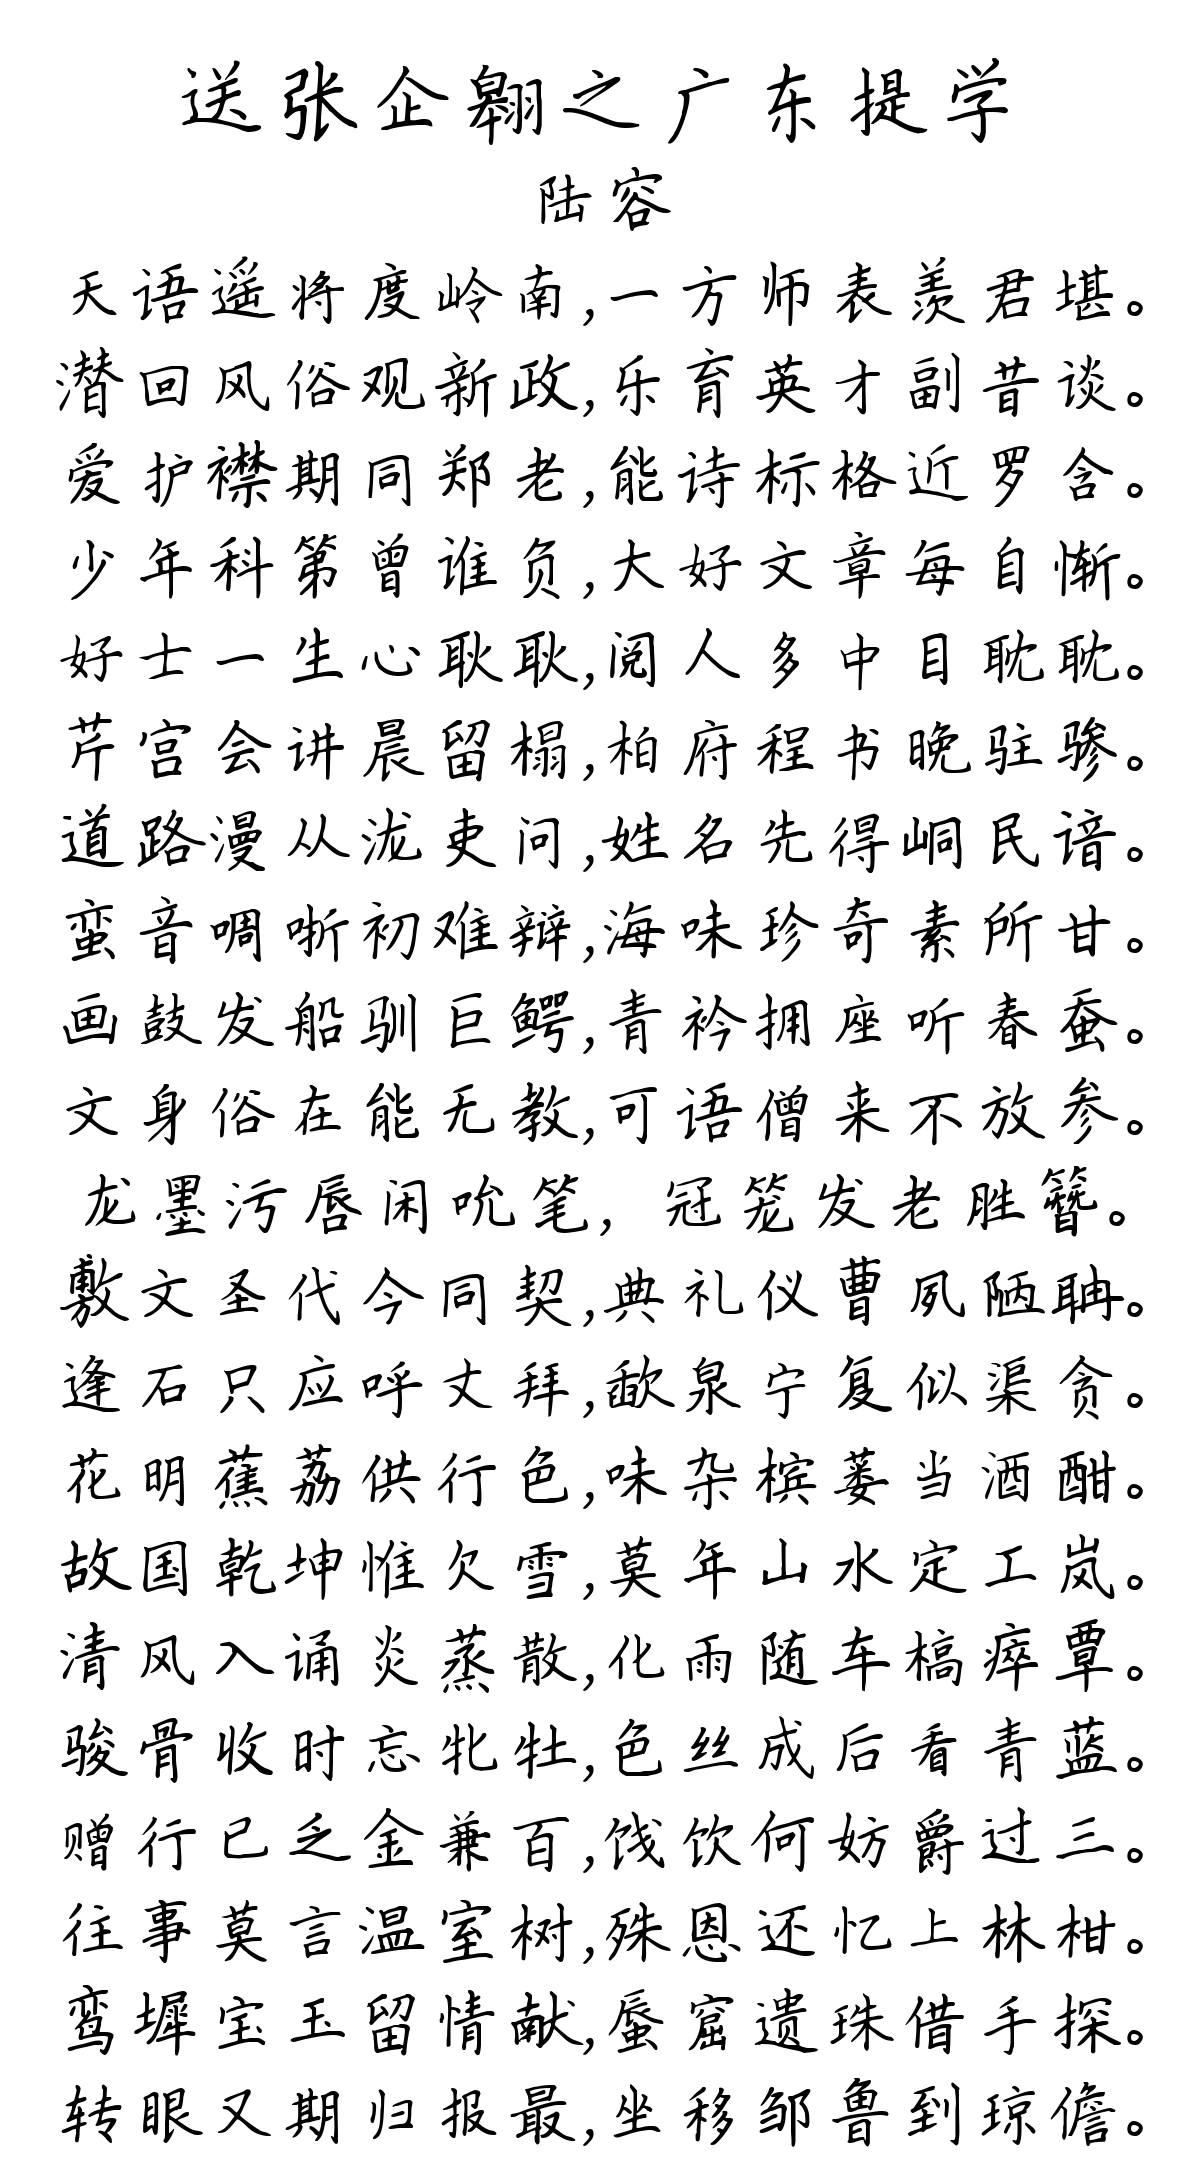 送张企翱之广东提学
陆容
天语遥将度岭南,一方师表羡君堪。
潜回风俗观新政,乐育英才副昔谈。
爱护襟期同郑老,能诗标格近罗含。
少年科第曾谁负,大好文章每自惭。
好士一生心耿耿,阅人多中目耽耽。
芹宫会讲晨留榻,柏府程书晚驻骖。
道路漫从泷吏问,姓名先得峒民谙。
蛮音啁哳初难辩,海味珍奇素所甘。
画鼓发船驯巨鳄,青衿拥座听春蚕。
文身俗在能无教,可语僧来不放参。
龙墨污唇闲吮笔，冠笼发老胜簪。
敷文圣代今同契,典礼仪曹夙陋聃。
逢石只应呼丈拜,歃泉宁复似渠贪。
花明蕉荔供行色,味杂槟蒌当酒酣。
故国乾坤惟欠雪,莫年山水定工岚。
清风入诵炎蒸散,化雨随车槁瘁覃。
骏骨收时忘牝牡,色丝成后看青蓝。
赠行已乏金兼百,饯饮何妨爵过三。
往事莫言温室树,殊恩还忆上林柑。
鸾墀宝玉留情献,蜃窟遗珠借手探。
转眼又期归报最,坐移邹鲁到琼儋。